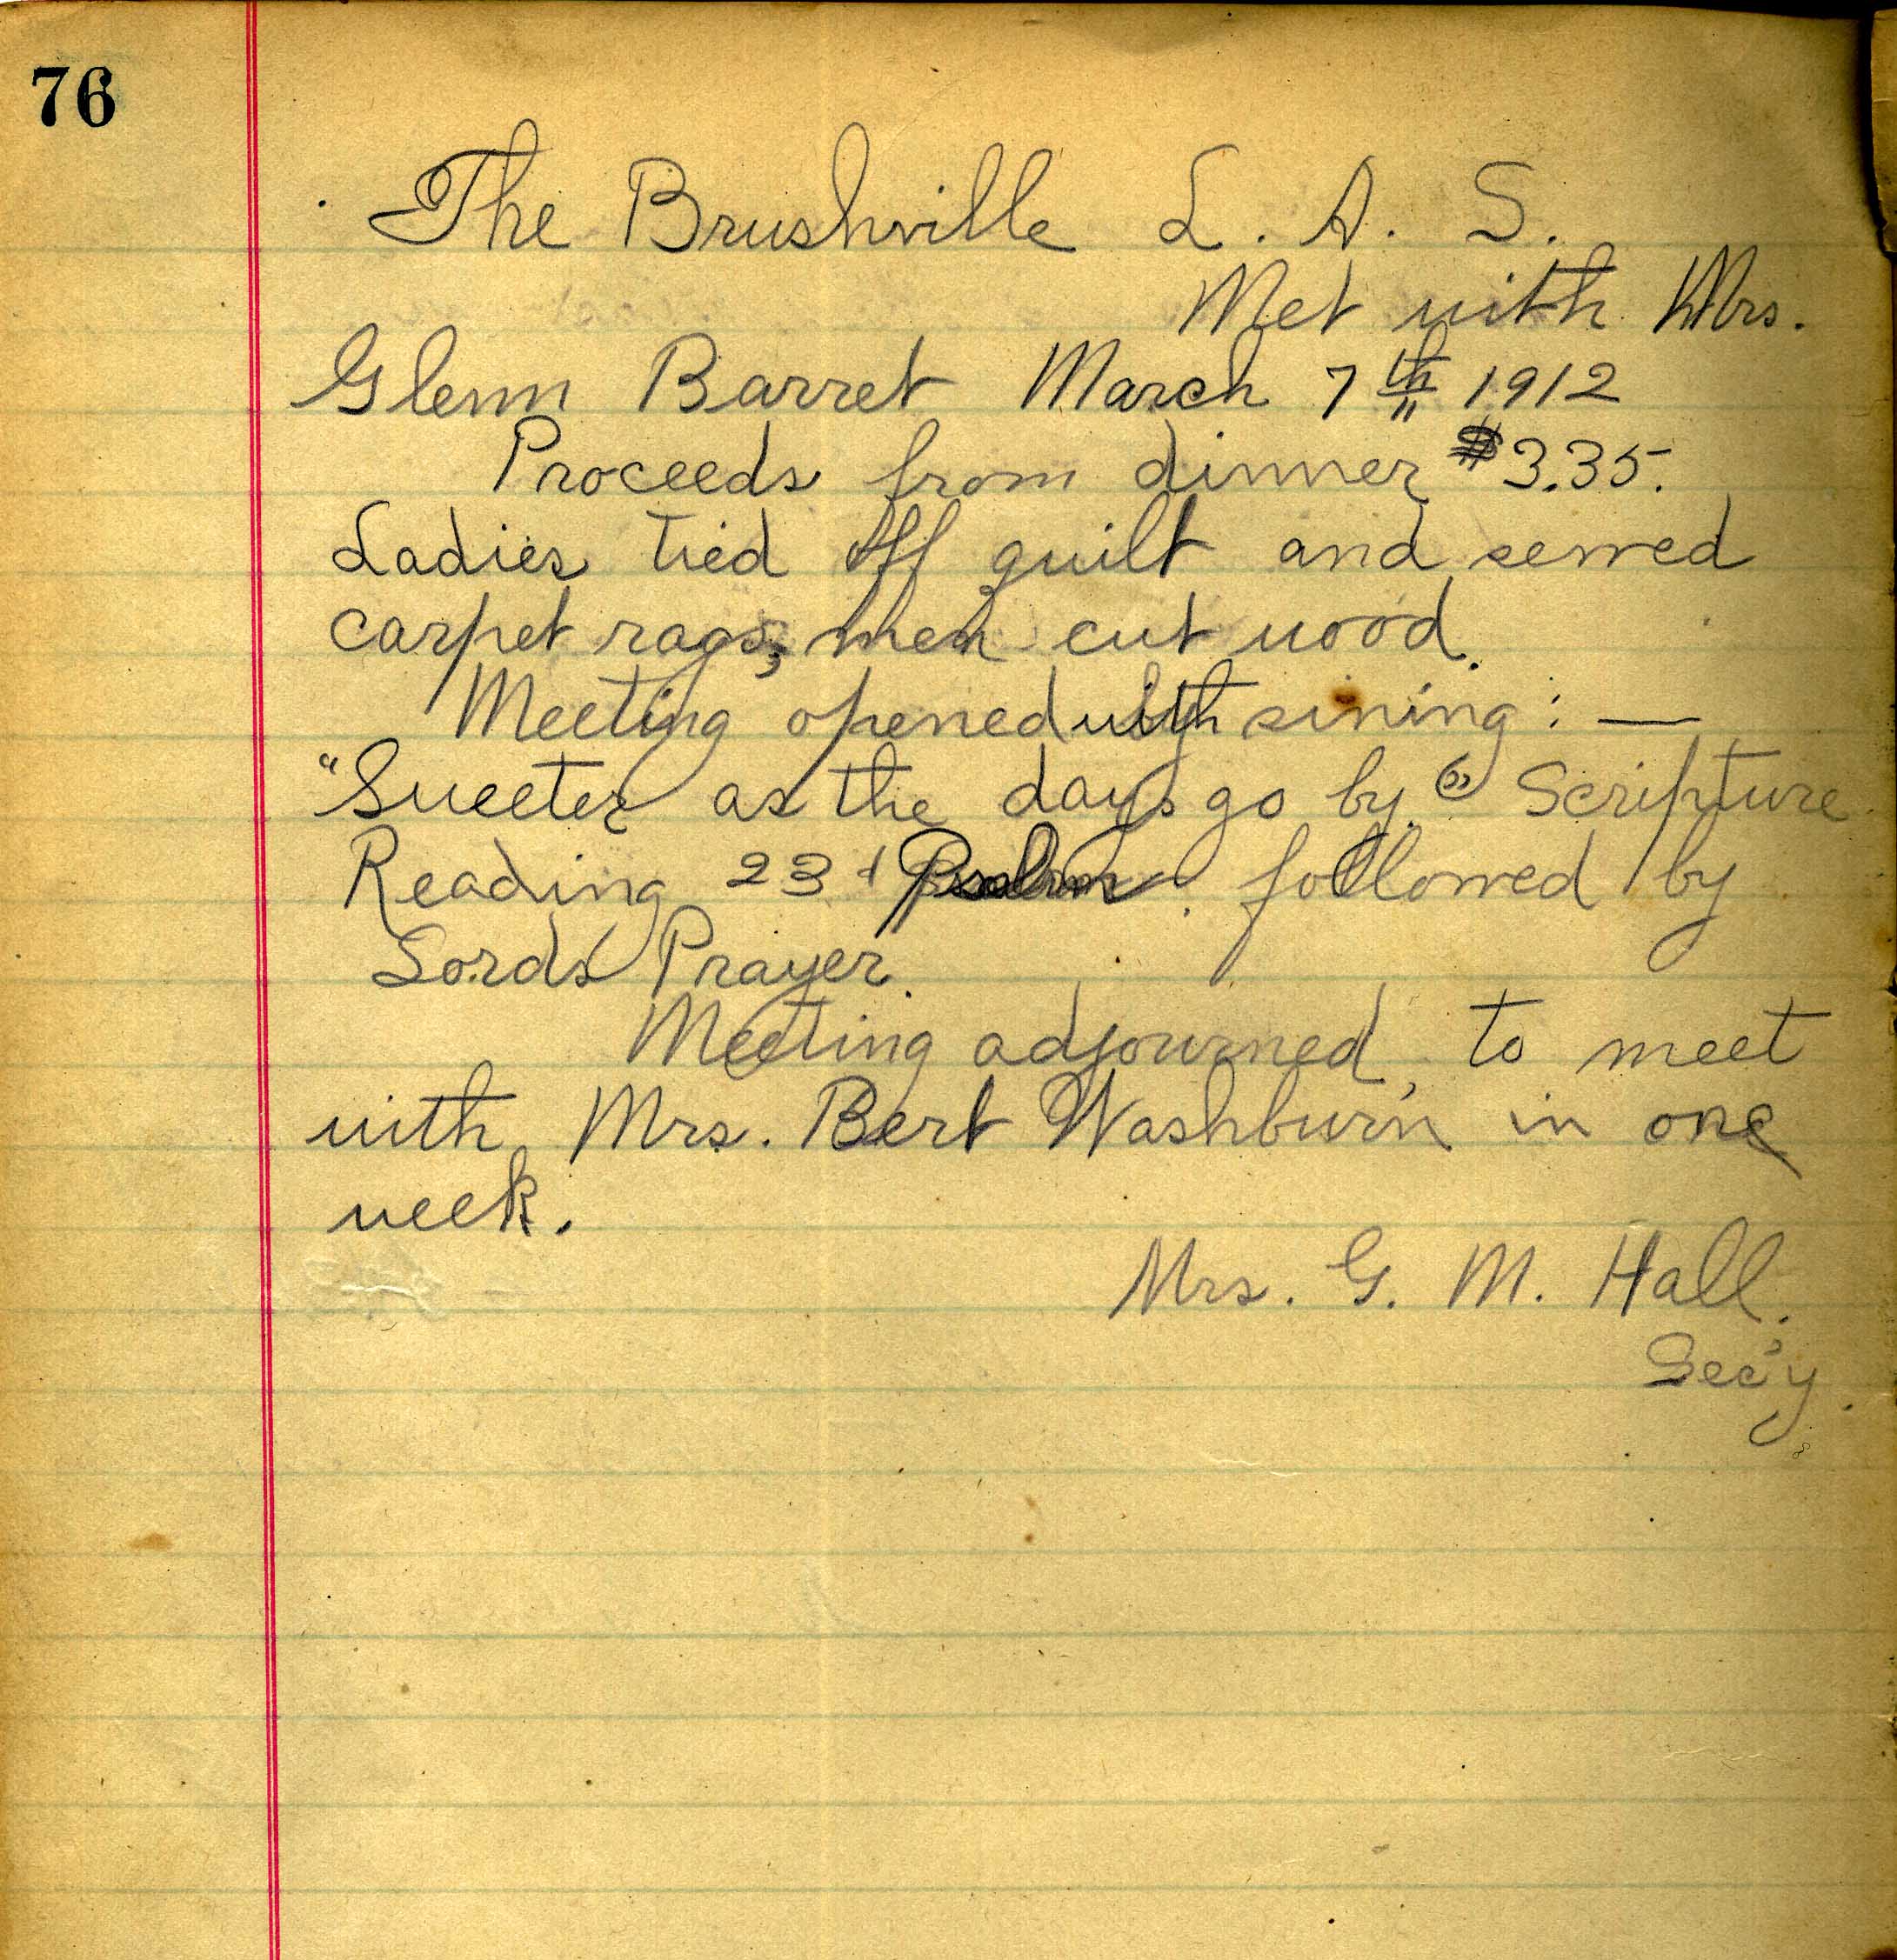 76
The Brushville L. A. S.
Met with Mrs.
Glenn Barret March 7th 1912
Proceeds from dinner $3.35.
Ladies tied off quilt and sewed
carpet rags; men cut wood.
Meeting opened with sining : —
"Sweeter as the days go by" Scripture
Reading 23d Psalm. followed by
Lords Prayer.
Meeting adjourned, to meet
with Mrs. Bert Washburn in one
week.
Mrs. G. M. Hall.
Sec'y.